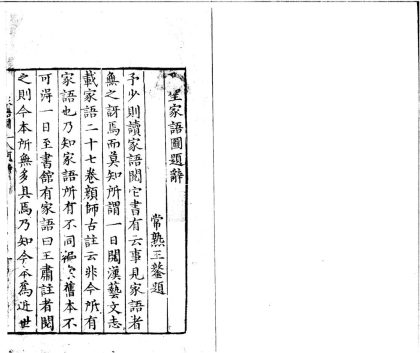 聖家語圖題辭
常熟王鏊題
予少則讀家語閱它書有云事見家語者
無之訝焉而莫知所謂一日閱漢藝文志
載家語二十七卷顏師古註云非今所有
家語也乃知家語所有不同 舊本不
可淂一日至書館有家語曰王肅註者閱
之則今本所無多具焉乃知今本為近世